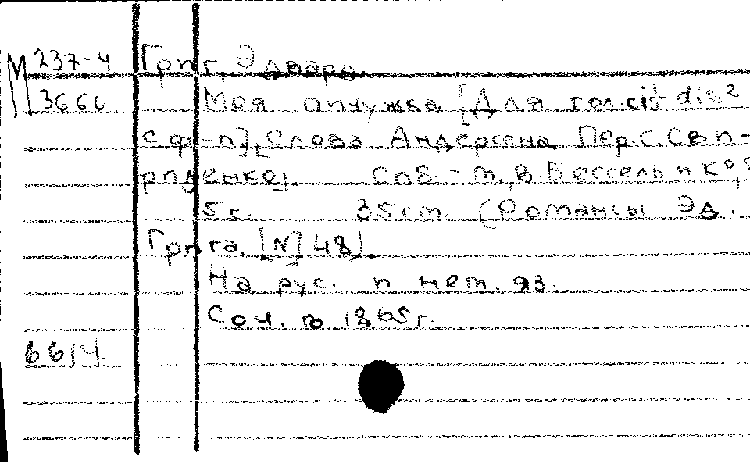 М 237-4 Григ, Эдвард.
3666 Моя [Для гол. cis¹-dis²
с ф-п], Слова Андерсена Пер. С. Сви-
риденко]. Спб - М., В. Бессель и К⁰,
5 с. 35 cm. (Романсы Эд.
Грига. [№] 48).
На рус. и нем. яз.
Соч. в 1865 г.
6614